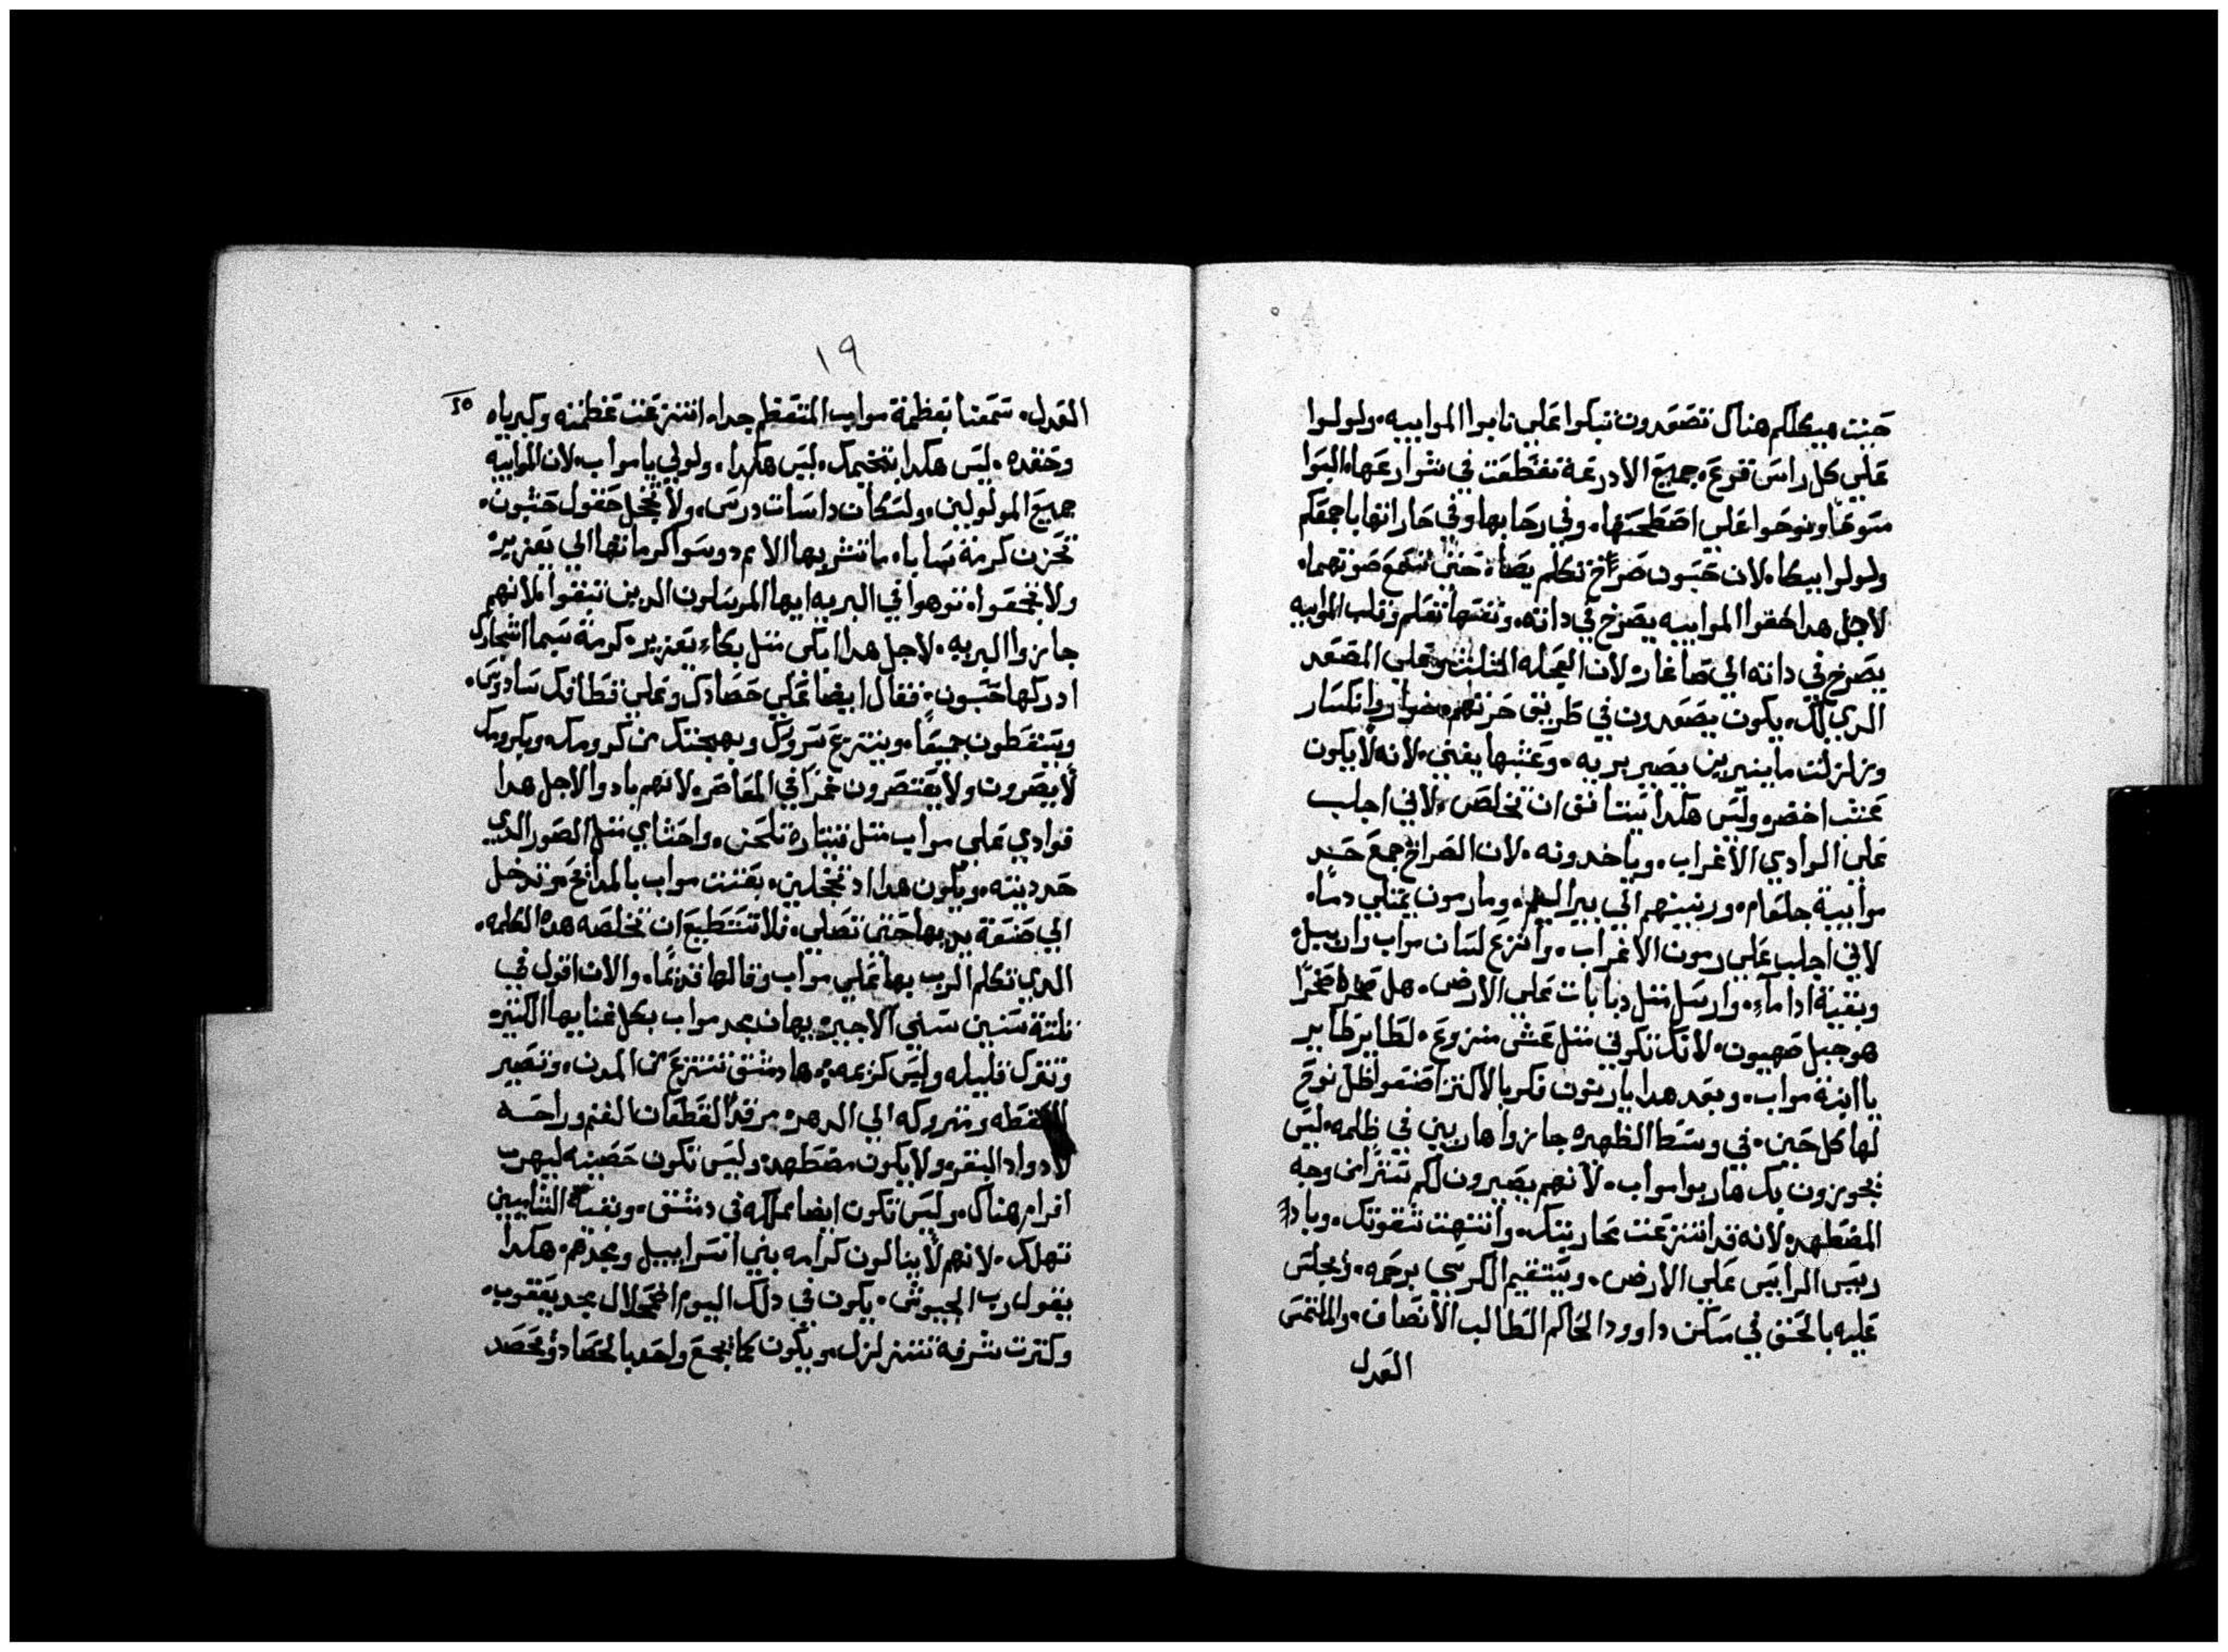 حيت هيكلكم هناك تصعدون تبكوا علي نابوا الموابيه ولولوا
علي كل راس قرع جميع الادرعة تقطعت في شوارعها البسوا
مسوحا ونوحوا علي اسطحتها وفي رحابها وفي حاراتها باجمعكم
ولولوا ببكا لان حسبون صراخ تكلم حتي تسمع صوتهما
لاجل هدا الموابيه يصرخ في داته ونفسها تعلم وقلب الموابيه
يصرخ في داته الي صاغار لان العجله المثلثه وعلي المصعد
الدي لك يكون يصعدون في طريق حرنهم وانكسار
وزلزلت ما ينمرين يصير بريه وعشبها يفني لانه لا يكون
عشب اخضر وليس هكدا ان تخلص لاني اجلب
علي الوادي الاغراب وياخدونه لان الصراخ جمع حد
موابية جلعام ورنينهم الي بير اليم وما رمون يمتلي دماء
لاني اجلب علي رمون الاغراب وانزع لسان مواب واربيل
وبقية اداماء وارسل مثل دبابات علي الارض هل صخره صخرا
هو جبل صهيون لانك تكوني مثل عش منزوع لطاير طاير
يا ابنة مواب وبعد هدا يا ريتون فكر بالاكثر اصنعوا ظل نوح
لها كل حين في وسط الظهيره جازوا هاربين في ظلمه ليس
يجوزون بك هاربوا مواب لانهم يصيرون لكم سترا من وجه
المضطهد لانه قد انتزعت محاربتك وانتهت شقوتك وباد
ريس الرايس علي الارض ويستقيم الكرسي برحمه ويجلس
عليه بالحق في مسكن داوود الحاكم الطالب الانصاف والملتمس
العدل
١٩
العدل سمعنا بعظمة مواب المتعظم جدا انتزعت عظمته وكبرياه
وحقده ليس هكدا بتنجيمك ليس هكدا ولولي يا مواب لان الموابيه
جميع المولولين ولسكان داسات درس ولا تخجل حقول حشبون
تحزن كرمة سابا ما تشربها الامم دوسوا كرماتها الي يعزير
ولا تجمعوا توهوا في البريه ايها المرسلون الدين تبقوا لانهم
جازوا البريه لاجل هدا ابكي مثل بكاء يعزير كرمة سيما اشجارك
ادركها حسبون فقال ايضا علي حصادك وعلي قطافك سادوس
ويسقطون جميعا وينتزع سرورك وبهجتك من كرومك وبكرومك
لا يصرون ولا يعتصرون خمرا في المعاصر لانهم بادوا لاجل هدا
قوادي علي مواب مثل قيتارة تلحن واحشاي مثل الصور الدي
جددته ويكون هدا اد تخجلين بعتت مواب بالمدابح وتدخل
الي صنعة يديها حتي تصلي فلا تستطيع ان تخلصه هده الكلمه
الدي تكلم الرب بها علي مواب وقالها قديما والان اقول في
ثلتة سنين سني الاجير يهان مجد مواب بكل غنايها الكثير
وتترك قليله وليس كريمه ها دمشق تنتزع من المدن وتصير
للسقطه ومتروكه الي الدهر مرقدا لقطعان الغنم وراحه
لادواد البقر ولا يكون مضطهد وليس تكون حصينه ليهرب
افرام هناك وليس تكون ايضا مملكه في دمشق وبقية الشاميين
تهلك لانهم لا ينالون كرامه بني اسراييل ومجدهم هكدا
يقول رب الجيوش يكون في دلك اليوم اضمحلال مجد يعقوب
وكترت شرفه تتزلزل ويكون كما يجمع واحد بالحصاد ويحصد